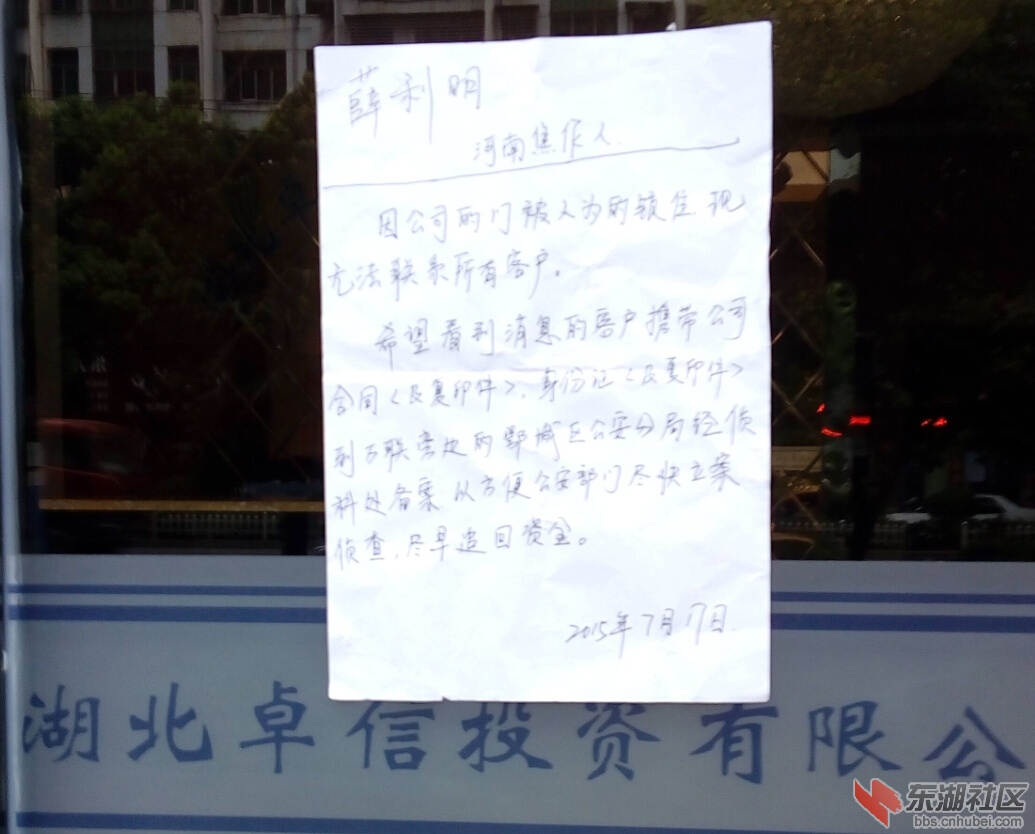 薛利明
河南焦作人.
因公司的门被人为的锁住现
无法联系所有客户。
希望看到消息的客户携带公司
合同<及复印件>、身份证<及复印件>
到万联旁边的鄂城区公安分局经侦
科处备案.以方便公安部门尽快立案
侦查,尽早追回资金。
2015年7月17日.
湖北卓信投资有限公
东湖社区
bbs.cnhubei.com